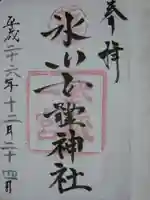 奉拝
氷川女體神社
平成二十六年十二月二十四日